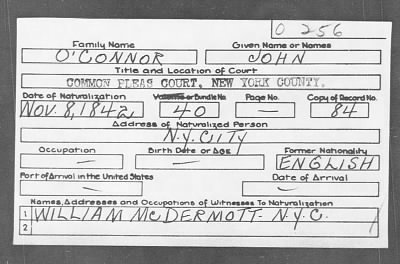 O 256
Family Name Given Name or Names
O'CONNOR JOHN
Title and Location of Court
COMMON PLEAS COURT, NEW YORK COUNTY.
Date of Naturalization Volume or Bundle No. Page No. Copy of Record No.
NOV. 8, 1842 40 — 84
Address of Naturalized Person
N.Y. CITY
Occupation Birth Date or Age Former Nationality
— — ENGLISH
Port of Arrival in the United States Date of Arrival
— —
Names, Addresses and Occupations of Witnesses To Naturalization
1 WILLIAM McDERMOTT - N.Y.C.
2